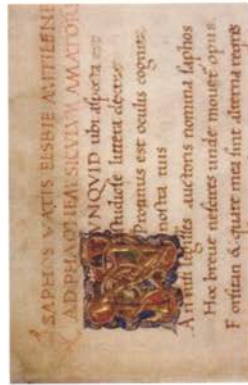 SAPHOS VATIS LESBIE MITTILENE
AD PHAONEM SICVLVM AMATORE
NNQVID ubi aspecta est
studiose littera dextre
Protinus est oculis cognita
nostra tuis
An nisi legisses auctoris nomina saphos
Hoc breue nescires unde mouet opus
Forsitan & quare mea sint alterna